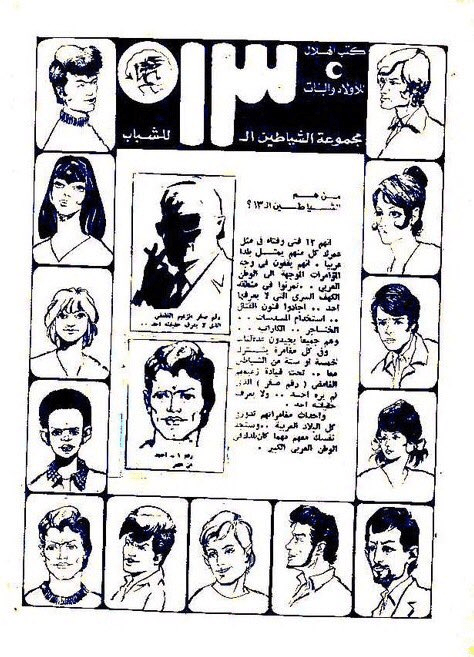 كتب الهلال
للأولاد والبنات
١٣
مجموعة الشياطين الـ
للشباب
من هم
الشياطين الـ ١٣ ؟
انهم ١٣ فتى وفتاة فى مثل
عمرك كل منهم يمثل بلدا
عربيا . انهم يقفون فى وجه
المؤامرات الموجهة الى الوطن
العربى . . تمرنوا فى منطقة
الكهف السرى التى لا يعرفها
احد . . اجادوا فنون القتال
. . استخدام المسدسات . .
الخناجر . . الكاراتيه . .
وهم جميعا يجيدون عدة لغات
وفى كل مغامرة يشترك
خمسة او ستة من الشياطين
معا . . تحت قيادة زعيمهم
الغامض ( رقم صفر ) الذى
لم يره احد . . ولا يعرف
حقيقته احد .
واحداث مغامراتهم تدور
فى كل البلاد العربية . . وستجد
نفسك معهم مهما كان بلدك فى
الوطن العربى الكبير .
رقم صفر الزعيم الغامض
الذى لا يعرف حقيقته احد . .
رقم ١ - احمد
من مصر